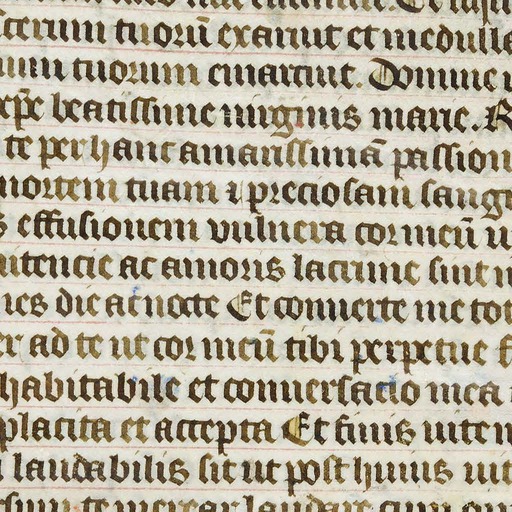 tuorū exaruit et medulle
tuorum emarcuit. Domine
xp̄e beatissime uirginis marie. R
te per hanc amarissimā passion
mortem tuam ⁊ preciosam sangu
s effusionem vulnera cor meū u
nitencie ac amoris lacrime sint
nes die ac nocte Et conuerte me tot
er ad te ut cor meū tibi perpetue
habitabile et conuersacio mea
placita et accepta Et finis uite
laudabilis sit ut post huius uit
te merear laudare cum